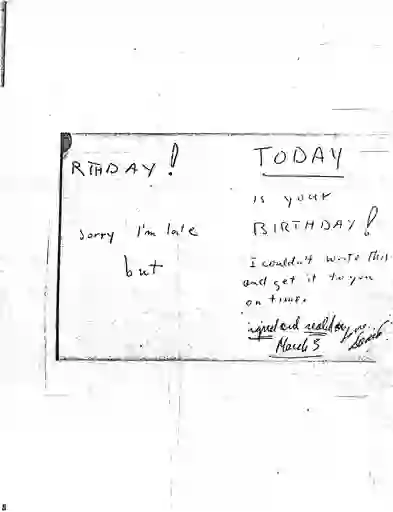 RTHDAY!
Sorry I'm late
but
TODAY
is your
BIRTHDAY!
I couldn't write this
and get it to you
on time.
signed and sealed
March 3
8